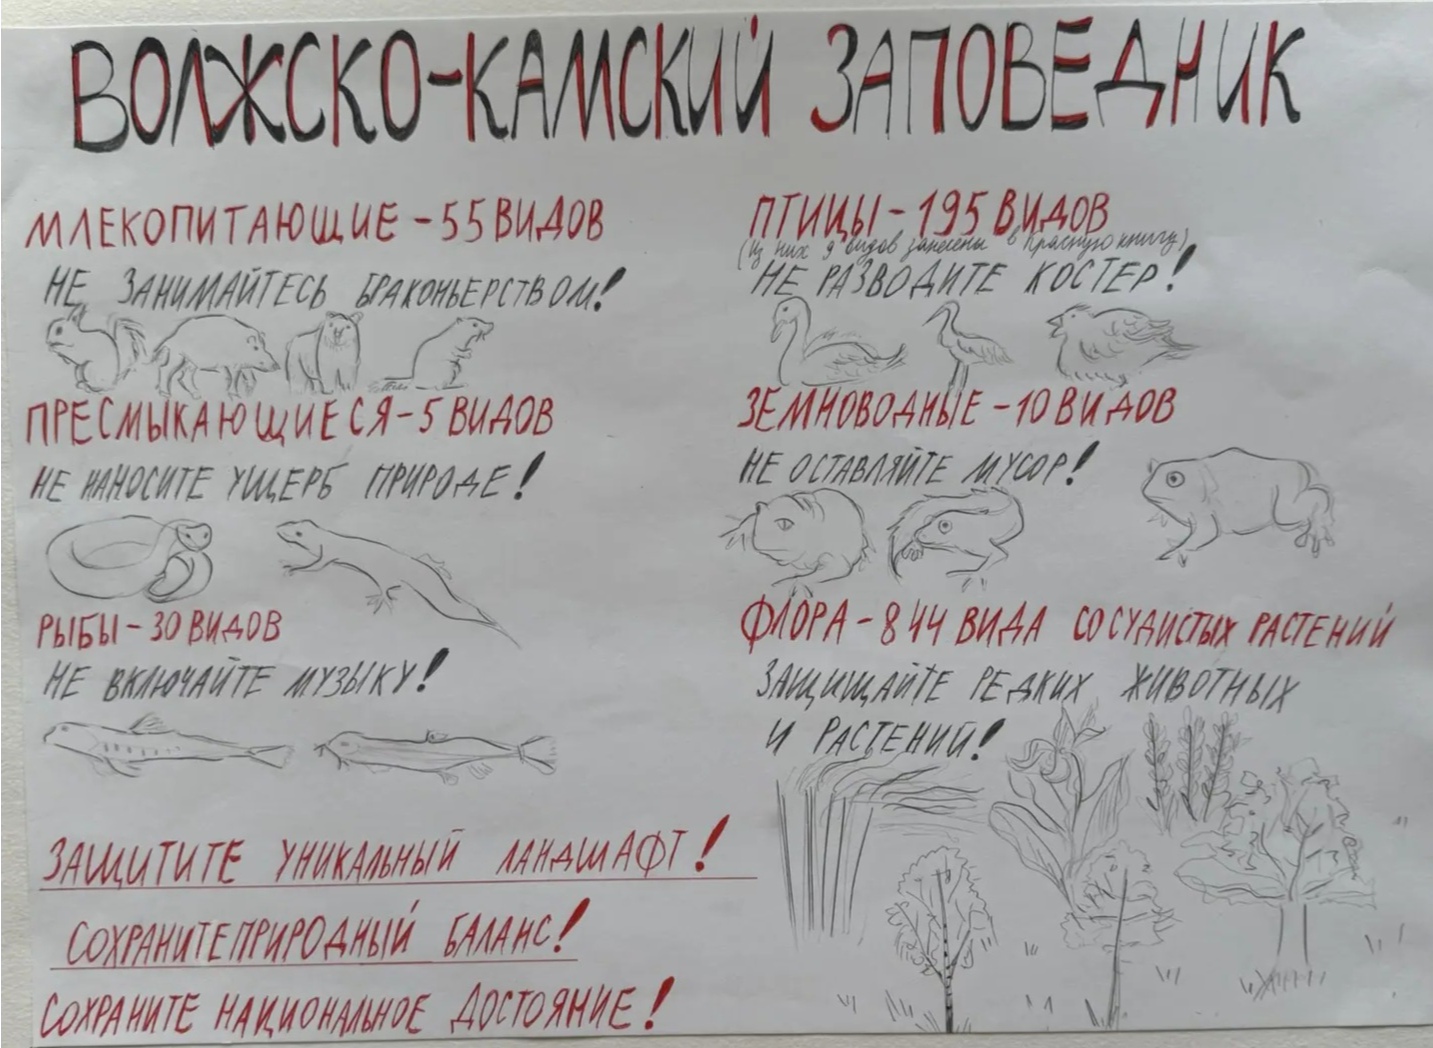 ВОЛЖСКО-КАМСКИЙ ЗАПОВЕДНИК
МЛЕКОПИТАЮЩИЕ - 55 ВИДОВ
НЕ ЗАНИМАЙТЕСЬ БРАКОНЬЕРСТВОМ!
ПРЕСМЫКАЮЩИЕСЯ - 5 ВИДОВ
НЕ НАНОСИТЕ УЩЕРБ ПРИРОДЕ!
РЫБЫ - 30 ВИДОВ
НЕ ВКЛЮЧАЙТЕ МУЗЫКУ!
ПТИЦЫ - 195 ВИДОВ
(из них 9 видов занесены в Красную книгу)
НЕ РАЗВОДИТЕ КОСТЕР!
ЗЕМНОВОДНЫЕ - 10 ВИДОВ
НЕ ОСТАВЛЯЙТЕ МУСОР!
ФЛОРА - 844 ВИДА СОСУДИСТЫХ РАСТЕНИЙ
ЗАЩИЩАЙТЕ РЕДКИХ ЖИВОТНЫХ
И РАСТЕНИЙ!
ЗАЩИТИТЕ УНИКАЛЬНЫЙ ЛАНДШАФТ!
СОХРАНИТЕ ПРИРОДНЫЙ БАЛАНС!
СОХРАНИТЕ НАЦИОНАЛЬНОЕ ДОСТОЯНИЕ!